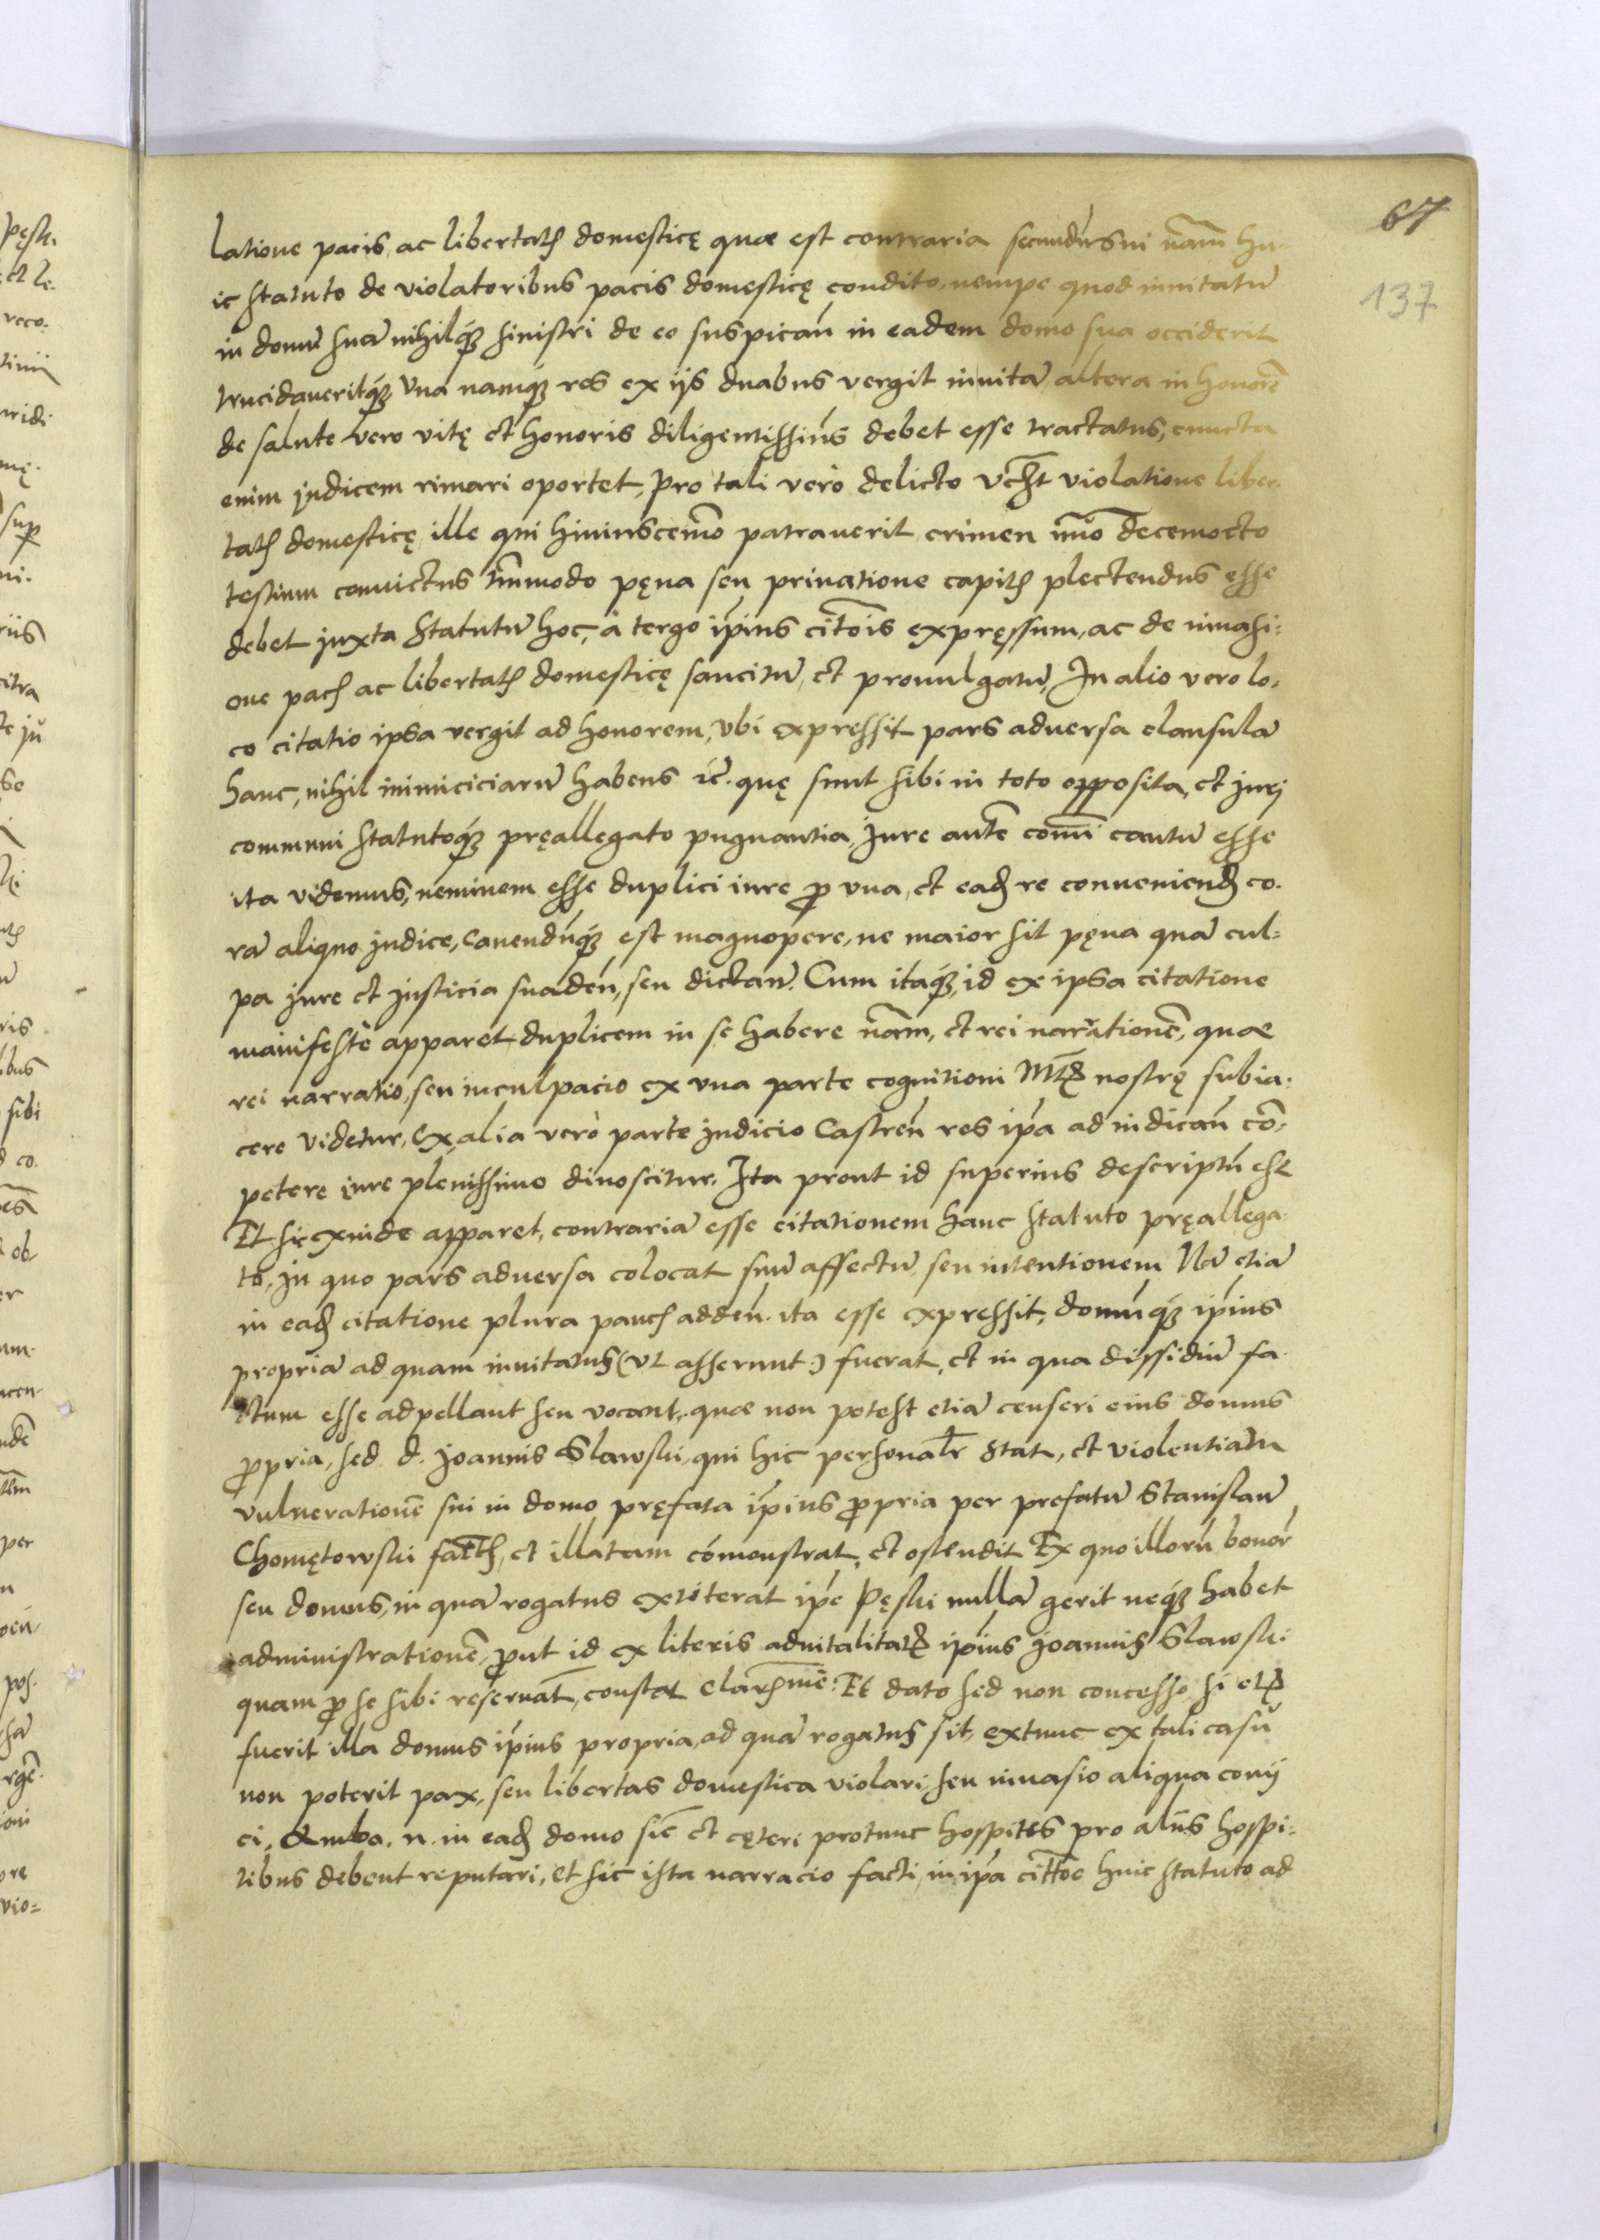 67
137
latione pacis, ac libertatꝭ domesticę quæ est contraria secundũ sui nãm hu-
ic statuto de violatoribus pacis domesticę condito, nempe quod inuitatũ
in domũ suã nihilq́ꝫ sinistri de eo suspicań in eadem domo sua occiderit
trucidaueritq́ꝫ Vna namq́ꝫ res ex ijs duabus vergit in vitã altera in honorẽ
de salute vero vitę et honoris diligentissius debet esse tractatus, cuncta
enim judicem rimari oportet, pro tali verò delicto vcꝫt violatione liber-
tatꝭ domesticę ille qui hiuiuscemõ patrauerit crimen nũo decemocto
testium conuictus tm̃modo pęna seu priuatione capitꝭ plectendus esse
debet juxta Statutũ hoc, à tergo ip̃ius citõis expręssum, ac de inuasi:
one pacꝭ ac libertatꝭ domesticę sancitũ, et promulgatũ, In alio vero lo-
co citatio ipsa vergit ad honorem, vbi expressit pars aduersa clausulã
hanc, nihil inimiciciarũ habens ꝛc̃. quę sunt sibi in toto opposita, et jurj
communi statutoq́ꝫ pręallegato pugnantia, Jure autẽ comĩ cautũ esse
ita videmus, neminem esse duplici iure ꝓ vna, et eadꝫ re conueniendꝫ co-
rã aliquo judice, Cauendũq́ꝫ est magnopere, ne maior sit pęna quã cul-
pa jure et justicia suadeń, seu dictań. Cum itaq́ꝫ, id ex ipsa citatione
manifestè apparet duplicem in se habere nãm, et rei narrationẽ, quæ
rei narratio, seu inculpacio ex vna parte cognitioni Mtꝭ nostrę subia-
cere videtur, Ex alia verò parte judicio Castreń res ip̃a ad iudicań cõ-
petere iure plenissimo dinoscitur. Ita prout id superius descriptũ est
Et sic exinde apparet, contrariã esse citationem hanc statuto pręallega-
to, in quo pars aduersa colocat suũ affectũ, seu intentionem Nã etiã
in eadꝫ citatione plura paucꝭ addeń. ita esse expressit, domũq́ꝫ ip̃ius
propriã ad quam inuitatus (vt asserunt:) fuerat, et in qua dissidiũ fa-
ctum esse adpellant seu vocant, quæ non potest etiã censeri eius domus
ꝓpria, sed d. Joannis Slawski, qui hic personalr̃ stat, et violentiam
vulnerationẽ sui in domo pręfata ip̃ius ꝓpria per prefatũ Stanislaũ
Chomętowski factꝭ, et illatam cõmonstrat, et ostendit Ex quo illorũ bonoŕ
seu domus, in quã rogatus extiterat ip̃e Pęski nullã gerit neq́ꝫ habet
administrationẽ, ꝓut id ex literis aduitalitatꝭ ip̃ius Joannis Slawski
quam ꝓ se sibi reseruãt, constat clarꝭmẽ: Et dato sed non concesso, si etꝫ
fuerit illa domus ip̃ius propria, ad quã rogatus sit, extunc ex tali casũ
non poterit pax, seu libertas domestica violari seu inuasio aliqua conij
ci, Ambo. n. in eadꝫ domo sic̃ et cęteri protunc hospites pro alijs hospi:
tibus debent reputari, et sic ista narracio facti, in ip̃a cittõe huic statuto ad